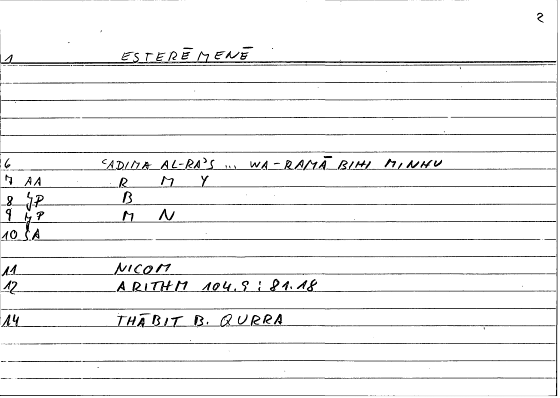 2
1 ESTERĒMENĒ
6 ʿADIMA AL-RAʾS ... WA-RAMĀ BIHI MINHU
7 AA R M Y
8 P B
9 P M N
10 A
11 NICOM
12 ARITHM 104.9 : 81.18
14 THĀBIT B. QURRA